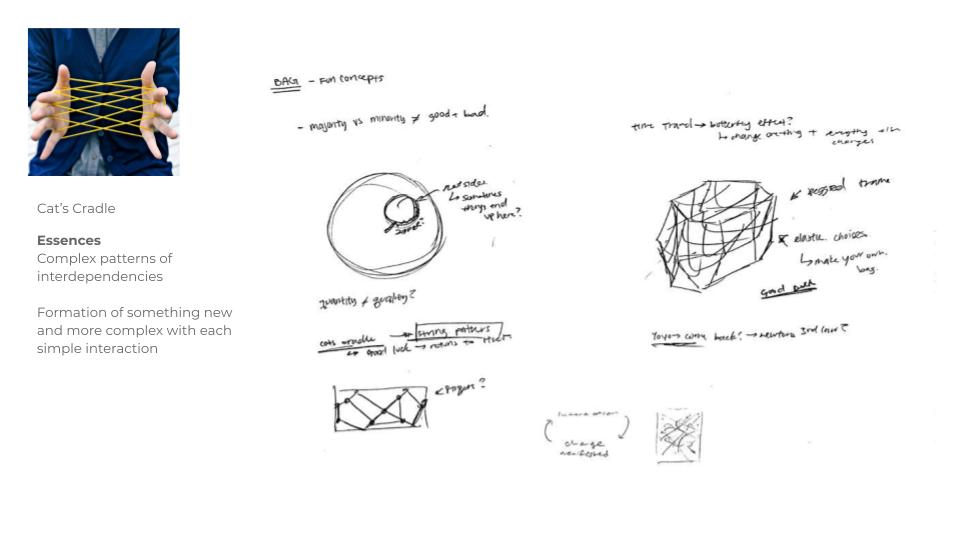 Cat's Cradle
Essences
Complex patterns of
interdependencies
Formation of something new
and more complex with each
simple interaction
BAG - Fun concepts
- majority vs minority ≠ good + bad.
↳ sometimes
things end
up here?
quantity ≠ quality?
cats cradle → string patterns
↳ Good luck → returns to
← Fingers?
time travel → butterfly effect?
↳ change one thing + everything
changes
← pegged frame
elastic choices
↳ make your own
bag.
Good luck
Yoyo → come back? → newtons 3rd law?
change
manifested